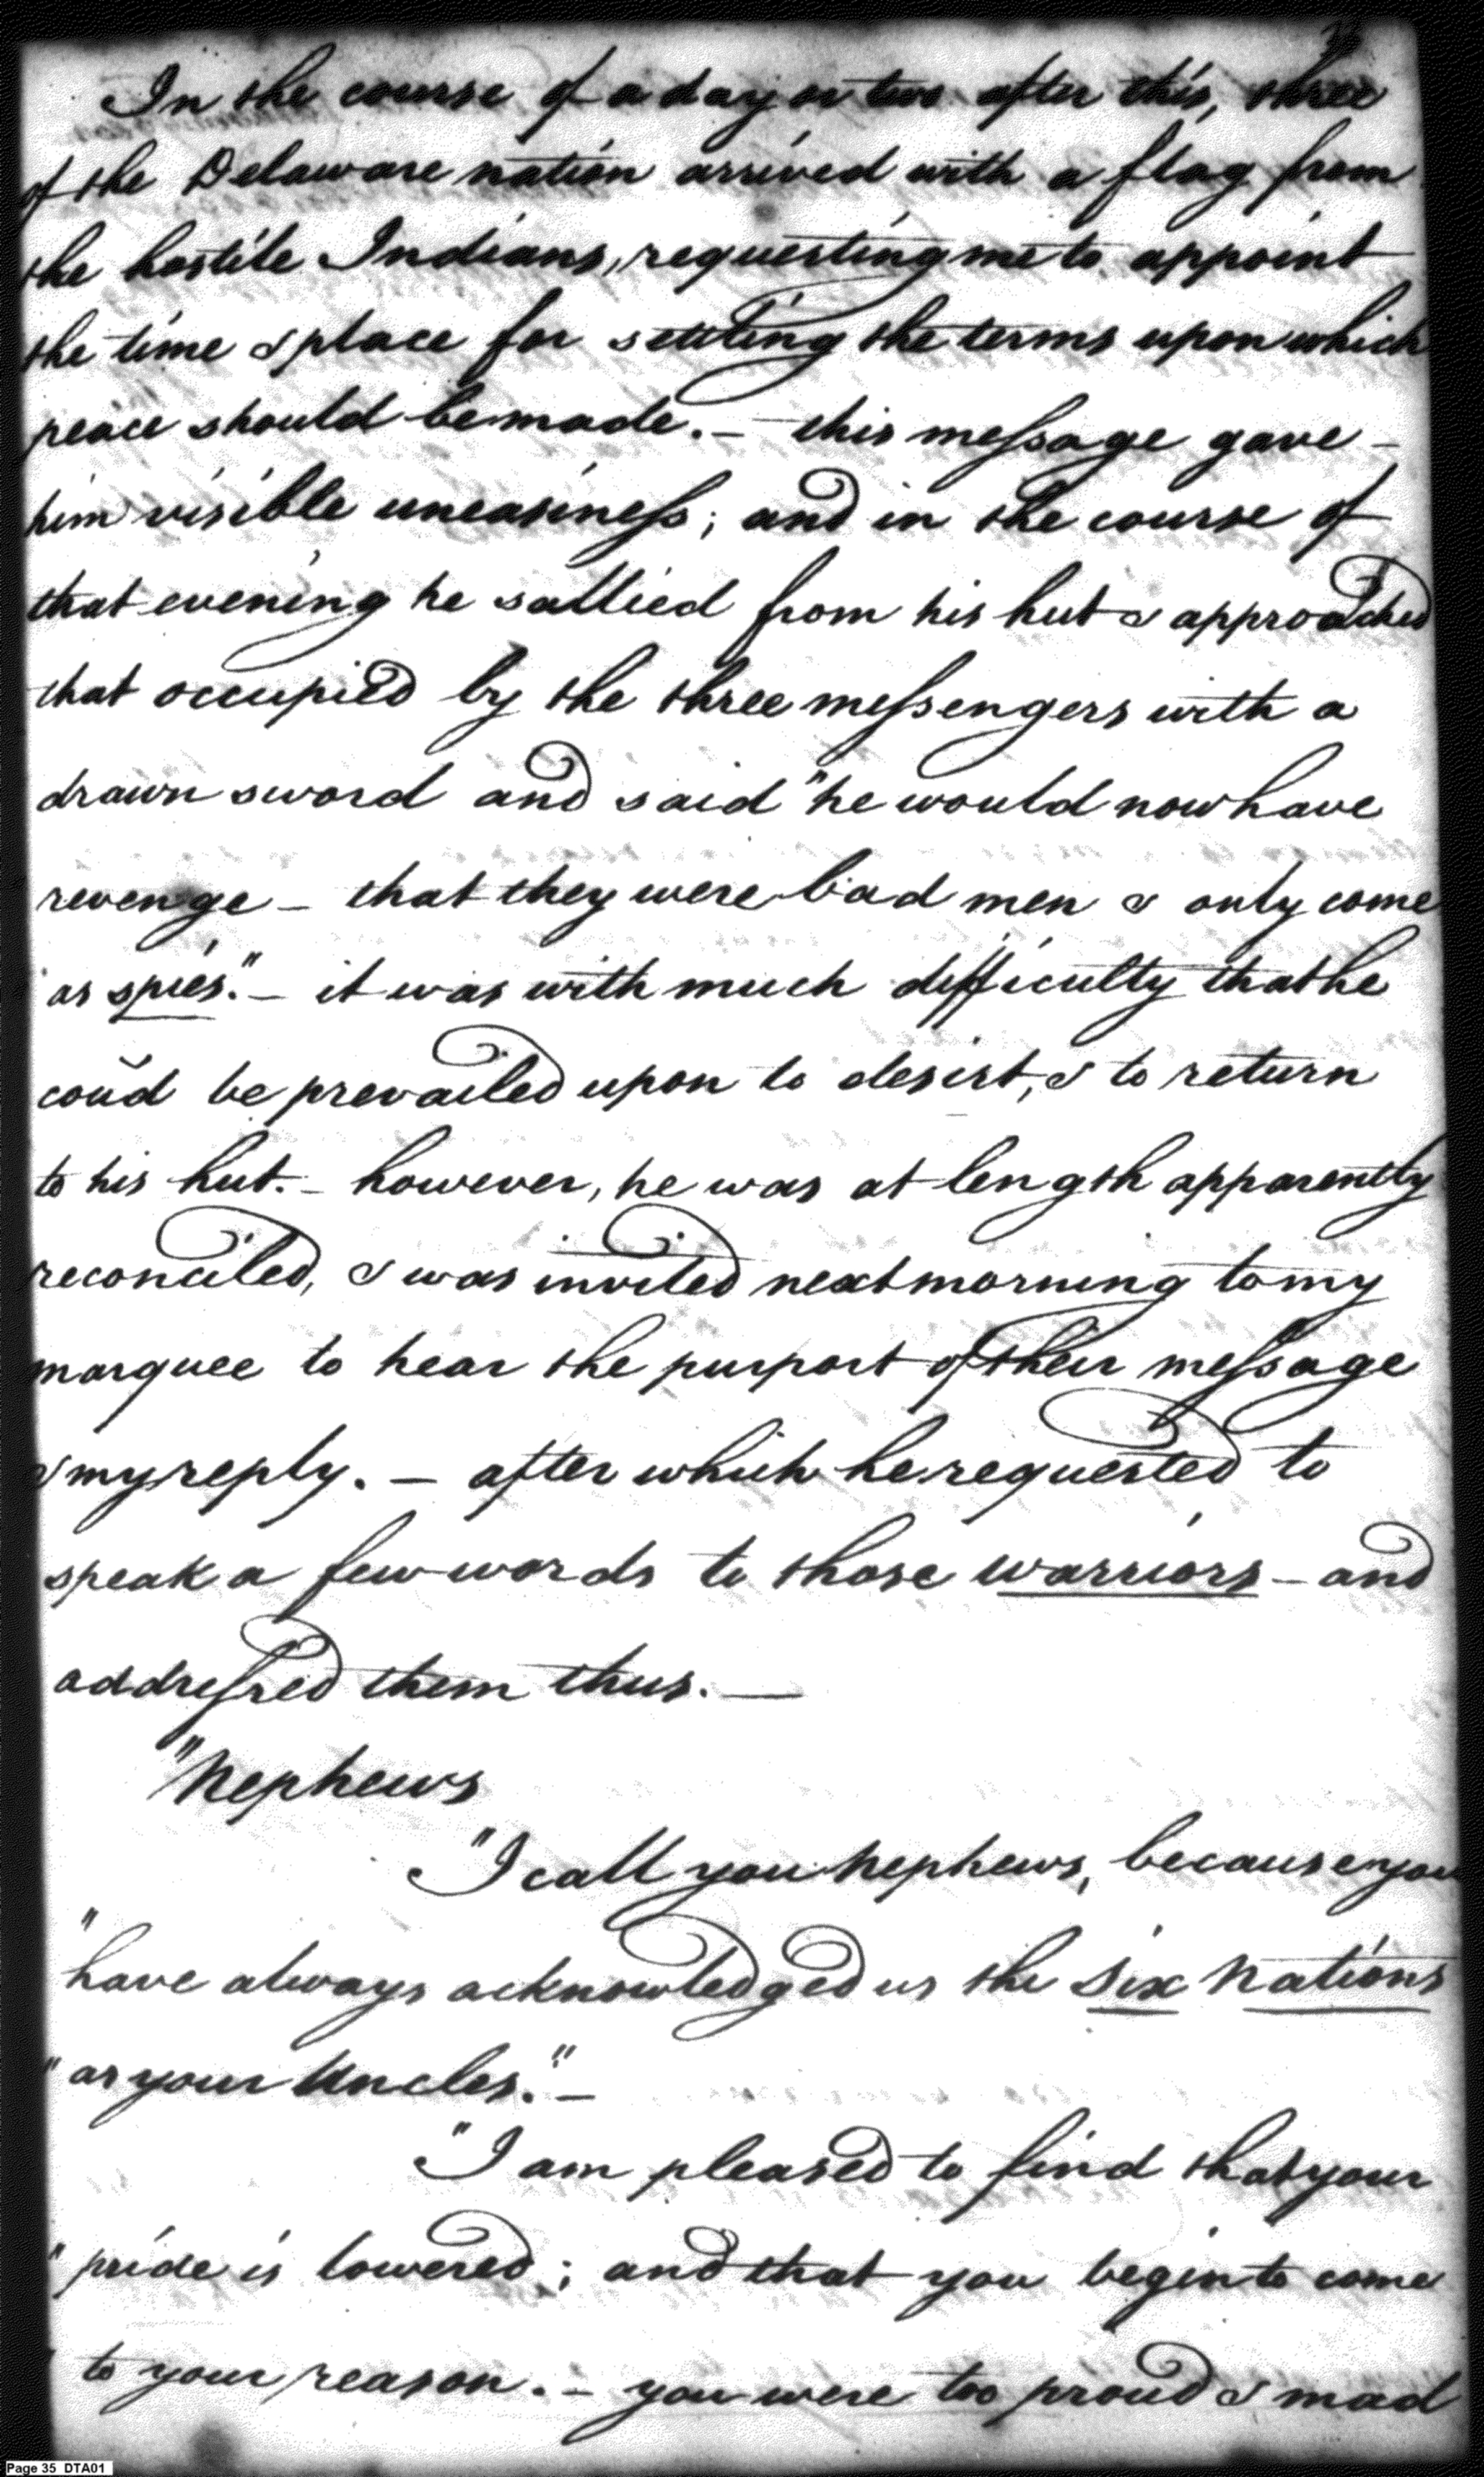 In the course of a day or two after this, three
of the Delaware nation arrived with a flag from
the hostile Indians, requesting me to appoint
the time & place for settling the terms upon which
peace should be made. — this message gave —
him visible uneasiness; and in the course of
that evening he sallied from his hut & approached
that occupied by the three messengers with a
drawn sword and said "he would now have
revenge — that they were bad men & only come
as spies." — it was with much difficulty that he
cou'd be prevailed upon to desist, & to return
to his hut. — however, he was at length apparently
reconciled, & was invited next morning to my
marquee to hear the purport of their message
& my reply. — after which he requested to
speak a few words to those warriors — and
addressed them thus. —
"Nephews
"I call you Nephews, because you
"have always acknowledged us the Six Nations
"as your Uncles." —
"I am pleased to find that your
"pride is lowered; and that you begin to come
to your reason. — you were too proud & mad
Page 35 DTA01